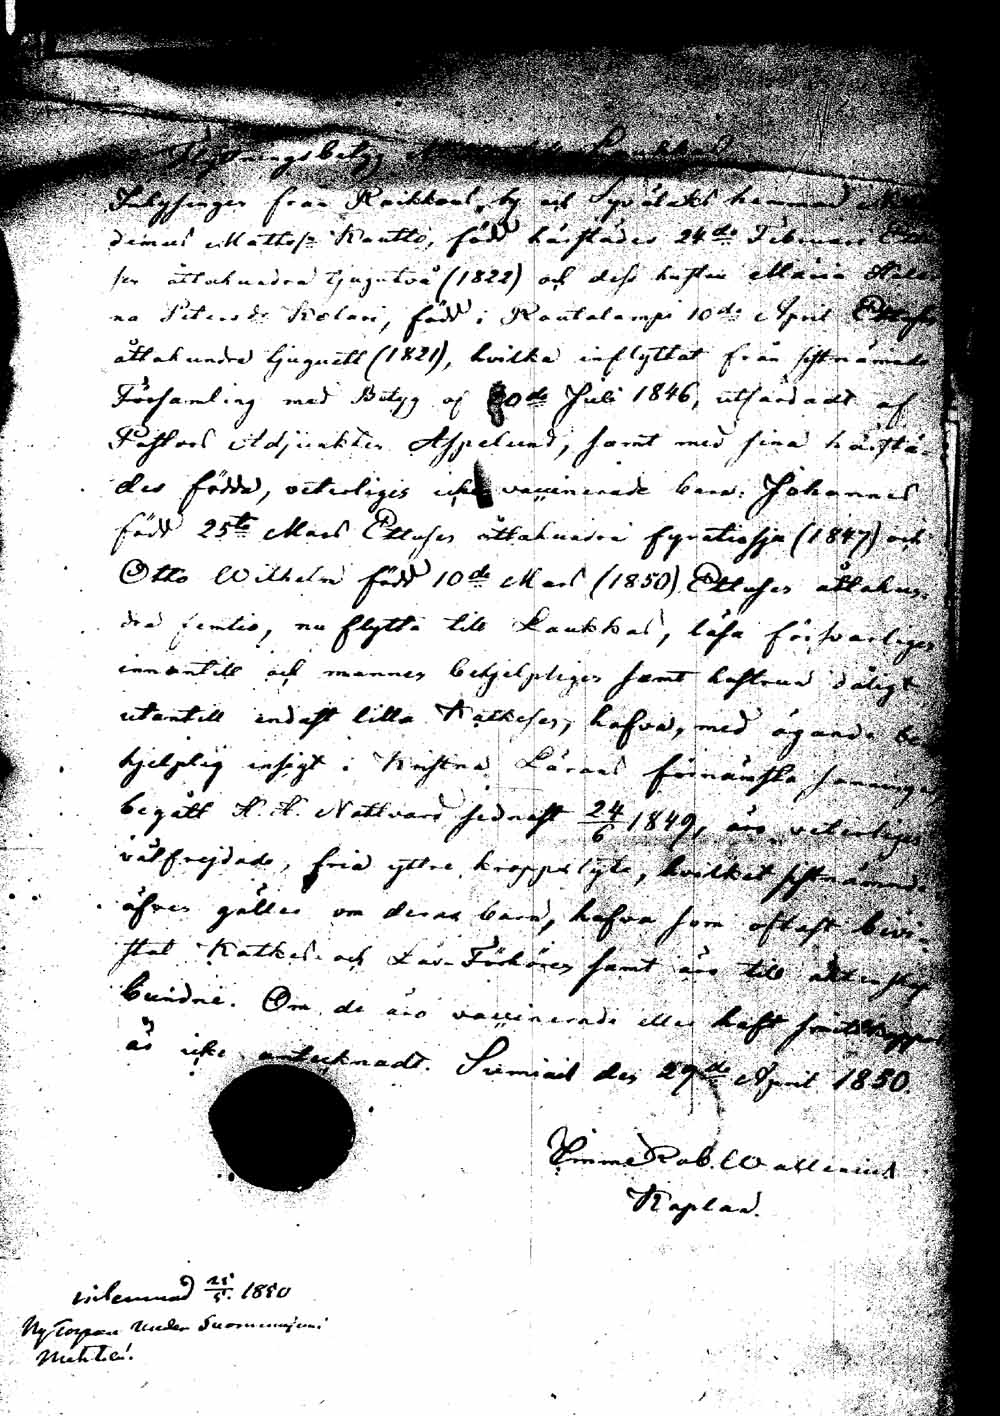 Flyttningsbetyg Laukkas
Inhysingen från Raikkaus by och Syvälaks hemman
demus Mattss. Kautto, född härstädes 24de Februari Ettu-
sen åttahundra tjugutvå (1822) och dess hustru Maria Hele-
na Petersdr Kolari, född i Rautalampi 10de April Ettusen
åttahundra tjuguett (1821), hvilka inflyttat från sistnämnde
Församling med Betyg af 20de Juli 1846, utfärdadt af
Pastors Adjunkten Aspelund, samt med sina härstä-
des födda, veterligen icke vaccinerade barn: Johannes
född 25te Mars Ettusen åttahundra fyratiosju (1847) och
Otto Wilhelm född 10de Mars (1850) Ettusen åttahun-
dra femtio, nu flytta till Laukkas, läsa försvarligen
innantill och mannen behjelpligen samt hustrun dåligt
utantill endast lilla Katkesen, hafva, med ägande
hjelplig insigt i Kristna Lärans förnämsta sanningar,
begått H. H. Nattvard sednast 24/6 1849, äro veterligen
välfrejdade, fria yttre kroppslyte, hvilket sistnämnde
äfven gäller om deras barn, hafva som oftast bevi-
stat Katkes- och Läse-Förhören samt äro till äktenskap
bundne. Om de äro vaccinerade eller haft smittkoppor
är icke antecknadt. Sumiais den 29de April 1850.
Rob. Wallenius
Kaplan.
inlemnad 25/5. 1850
Ny Torpare under Suomenniemi